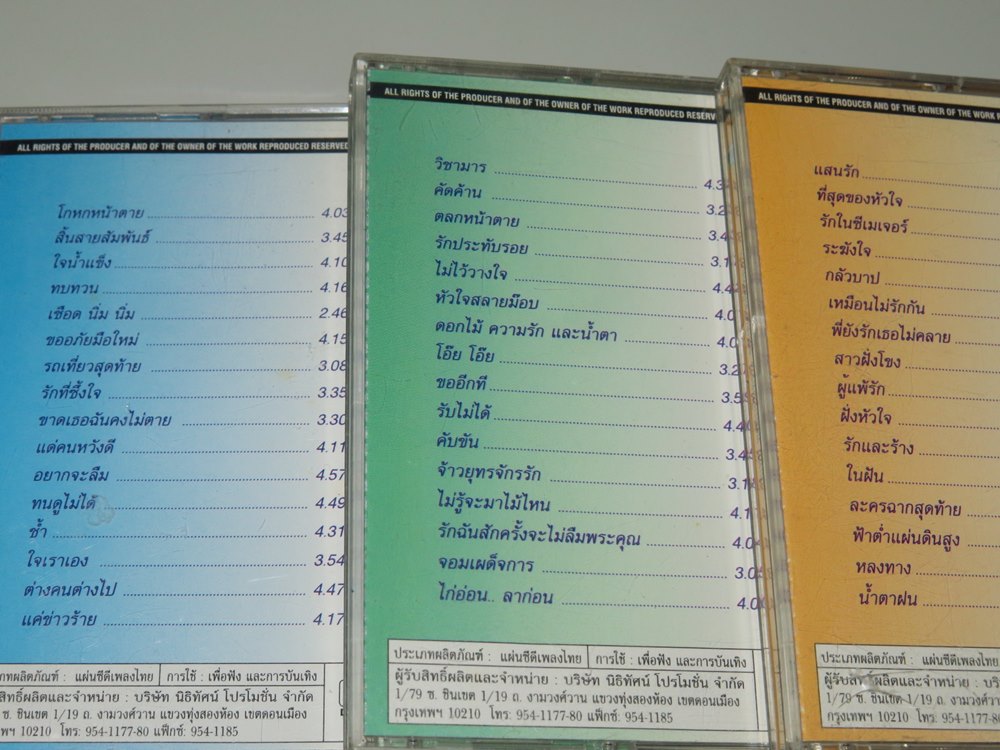 ALL RIGHTS OF THE PRODUCER AND OF THE OWNER OF THE WORK REPRODUCED RESERVED
โกหกหน้าตาย 4.03
สิ้นสายสัมพันธ์ 3.45
ใจน้ำแข็ง 4.10
ทบทวน 4.16
เชือด นิ่ม นิ่ม 2.46
ขออภัยมือใหม่ 4.15
รถเที่ยวสุดท้าย 3.08
รักที่ซึ้งใจ 3.35
ขาดเธอฉันคงไม่ตาย 3.30
แด่คนหวังดี 4.11
อยากจะลืม 4.57
ทนดูไม่ได้ 4.49
ช้ำ 4.31
ใจเราเอง 3.54
ต่างคนต่างไป 4.47
แค่ข่าวร้าย 4.17
ผลิตภัณฑ์ : แผ่นซีดีเพลงไทย การใช้ : เพื่อฟัง และการบันเทิง
ผลิตและจำหน่าย : บริษัท นิธิทัศน์ โปรโมชั่น จำกัด
ซ. ชินเขต 1/19 ถ. งามวงศ์วาน แขวงทุ่งสองห้อง เขตดอนเมือง
10210 โทร: 954-1177-80 แฟ็กซ์: 954-1185
ALL RIGHTS OF THE PRODUCER AND OF THE OWNER OF THE WORK REPRODUCED RESERV
วิชามาร
คัดค้าน
ตลกหน้าตาย
รักประทับรอย
ไม่ไว้วางใจ
หัวใจสลายม๊อบ
ดอกไม้ ความรัก และน้ำตา
โอ๊ย โอ๊ย
ขออีกที
รับไม่ได้
คับขัน
จ้าวยุทธจักรรัก
ไม่รู้จะมาไม้ไหน
รักฉันสักครั้งจะไม่ลืมพระคุณ
จอมเผด็จการ
ไก่อ่อน.. ลาก่อน
ประเภทผลิตภัณฑ์ : แผ่นซีดีเพลงไทย การใช้ : เพื่อฟัง และการบันเทิง
ผู้รับสิทธิ์ผลิตและจำหน่าย : บริษัท นิธิทัศน์ โปรโมชั่น จำกัด
1/79 ซ. ชินเขต 1/19 ถ. งามวงศ์วาน แขวงทุ่งสองห้อง เขตดอนเมือง
กรุงเทพฯ 10210 โทร: 954-1177-80 แฟ็กซ์: 954-1185
ALL RIGHTS OF THE PRODUCER AND OF THE OWNER OF THE WORK
แสนรัก
ที่สุดของหัวใจ
รักในซีเมเจอร์
ระฆังใจ
กลัวบาป
เหมือนไม่รักกัน
พี่ยังรักเธอไม่คลาย
สาวฝั่งโขง
ผู้แพ้รัก
ฝั่งหัวใจ
รักและร้าง
ในฝัน
ละครฉากสุดท้าย
ฟ้าต่ำแผ่นดินสูง
หลงทาง
น้ำตาฝน
ประเภทผลิตภัณฑ์ : แผ่นซีดีเพลงไทย
ผู้รับสิทธิ์ผลิตและจำหน่าย : บริษัท
1/79 ซ. ชินเขต 1/19 ถ. งามวงศ์วาน
กรุงเทพฯ 10210 โทร: 954-1177-80